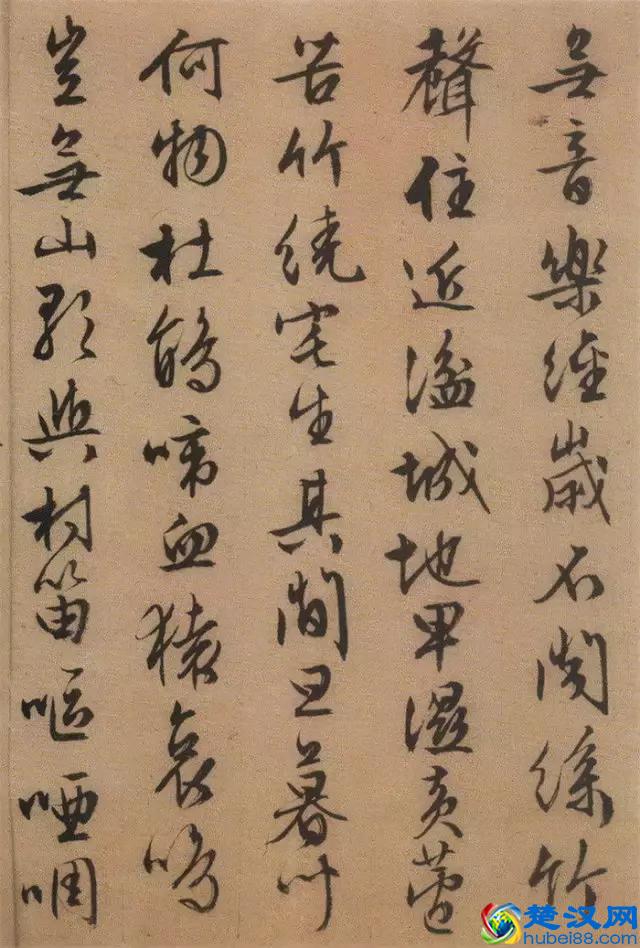 無音樂經歲不聞絲竹
聲住近湓城地卑濕黃蘆
苦竹繞宅生其間旦暮
何物杜鵑啼血猿哀鳴
豈無山歌與村笛嘔啞啁
楚汉网
hubei88.com